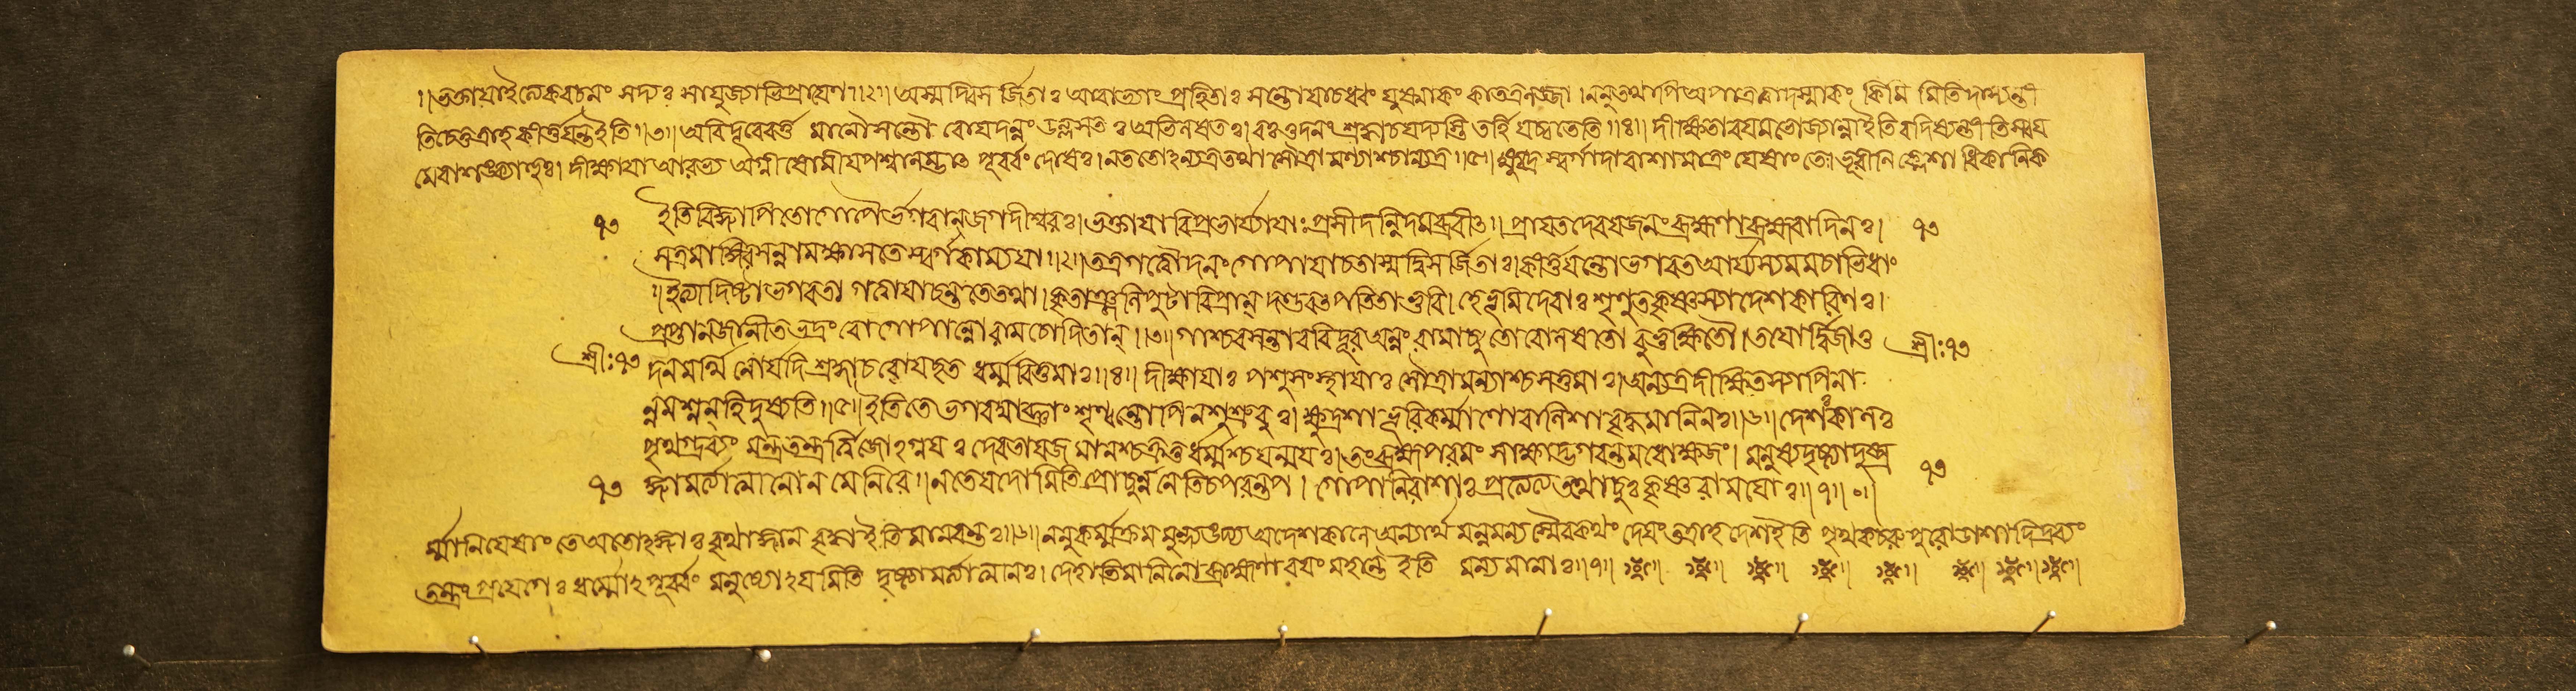 ।ভক্তায়া ইত্যেকবচনং সদ্যঃ সাযুজ্যাভিপ্রায়েণ॥২॥ অস্মদ্বিসর্জিতাঃ আবাভ্যাং প্রহিতাঃ সন্তো যাচধ্বং যুষ্মাকং কাতত্রলজ্জা ।ননু তথাপি অপাত্রত্বাদস্মাকং কিমিতি দাস্যন্তী
তিচেত্তত্রাহ কীর্ত্তয়ন্ত ইতি॥৩॥ অবিদূরে বর্ত্তমানৌ সন্তৌ বো যদন্নং লষতঃ অভিলষতঃ। বঃ ওদনং শ্রদ্ধা চ যদ্যস্তি তর্হি যচ্ছতেতি॥৪॥ দীক্ষিতা বয়মতোঽস্মদন্নং ইতি বদিষ্যন্তীতি স্বয়
মেবাশঙ্ক্যাহুঃ। দীক্ষায়া আরভ্য অগ্নীষোমীয়পশ্বালম্ভাৎ পূর্ব্বং দোষঃ। ন ততোঽন্যত্র তথা সৌত্রামণ্যাশ্চান্যত্র॥৫॥ ক্ষুদ্র স্বর্গাদাবাশামাত্রং যেষাং তে। ভূরীণি ক্লেশাধিকানি ক
৭৩ ইতি বিজ্ঞাপিতো গোপৈর্ভগবান্ জগদীশ্বরঃ। ভক্তায়া বিপ্রভার্য্যায়াঃ প্রসীদন্নিদমব্রবীৎ॥ প্রায়াত দেবযজনং ব্রাহ্মণা ব্রহ্মবাদিনঃ। ৭৩
সত্রমাঙ্গিরসন্নাম হ্যাসতে স্বর্গকাম্যয়া॥২॥ তত্র গত্বৌদনং গোপা যাচতাস্মদ্বিসর্জিতাঃ। কীর্ত্তয়ন্তো ভগবত আর্য্যস্য মম চাভিধাং
॥ইত্যাদিষ্টা ভগবতা গত্বা যাচন্ত তে তথা। কৃতাঞ্জলিপুটা বিপ্রান্ দণ্ডবৎ পতিতা ভুবি। হে ভূমিদেবাঃ শৃণুত কৃষ্ণস্যাদেশকারিণঃ।
প্রাপ্তান্ জানীত ভদ্রং বো গোপান্নো রামচোদিতান্।॥৩॥ গাশ্চারয়ন্তাববিদূর অন্নং রামাচ্যুতৌ বো লষতো বুভুক্ষিতৌ। তয়োর্দ্বিজা ও
শ্রীঃ৭৩ দনমর্থিনোর্যদি শ্রদ্ধা চ বো যচ্ছত ধর্ম্মবিত্তমাঃ॥৪॥ দীক্ষায়াঃ পশুসংস্থায়াঃ সৌত্রামন্যাশ্চ সত্তমাঃ। অন্যত্র দীক্ষিতস্যাপি না শ্রীঃ৭৩
ন্নমশ্নন্ হি দুষ্যতি॥৫॥ ইতি তে ভগবদ্যাচ্ঞাং শৃণ্বন্তোপি ন শুশ্রুবুঃ। ক্ষুদ্রাশা ভূরিকর্ম্মাণো বালিশা বৃদ্ধমানিনঃ॥৬॥ দেশঃ কালঃ
পৃথগ্দ্রব্যং মন্ত্রতন্ত্রর্ত্বিজোঽগ্নয়ঃ দেবতা যজমানশ্চ ক্রতুর্ধর্ম্মশ্চ যন্ময়ঃ। তং ব্রহ্ম পরমং সাক্ষাদ্ভগবন্তমধোক্ষজং। মনুষ্যদৃষ্ট্যা দুষ্প্র
৭৩ জ্ঞা মর্ত্যাত্মানো ন মেনিরে॥ ন তে যদোমিতি প্রোচুর্ন্ন নেতি চ পরন্তপ। গোপা নিরাশাঃ প্রত্যেত্য তথোচুঃ কৃষ্ণরাময়োঃ॥৭॥০॥ ৭৩
র্ম্মাণি যেষাং তে অতোঽজ্ঞাঃ বৃথা জ্ঞানবৃদ্ধা ইতি মানবন্তঃ॥৬॥ ননু কর্ম্মক্রমমুল্লঙ্ঘ্য অদেশকালে অন্যার্থমন্নমন্যস্মৈ কথং দেয়ং তত্রাহ দেশ ইতি পৃথক্ চরুপুরোডাশাদি দ্রব্যং
তন্ত্রং প্রয়োগঃ ধর্ম্মোঽপূর্ব্বং মনুষ্যোঽয়মিতি দৃষ্ট্যা মর্ত্যাত্মানঃ। দেহাভিমানিনো ব্রাহ্মণা বয়ং মহান্ত ইতি মন্যমানাঃ॥৭॥